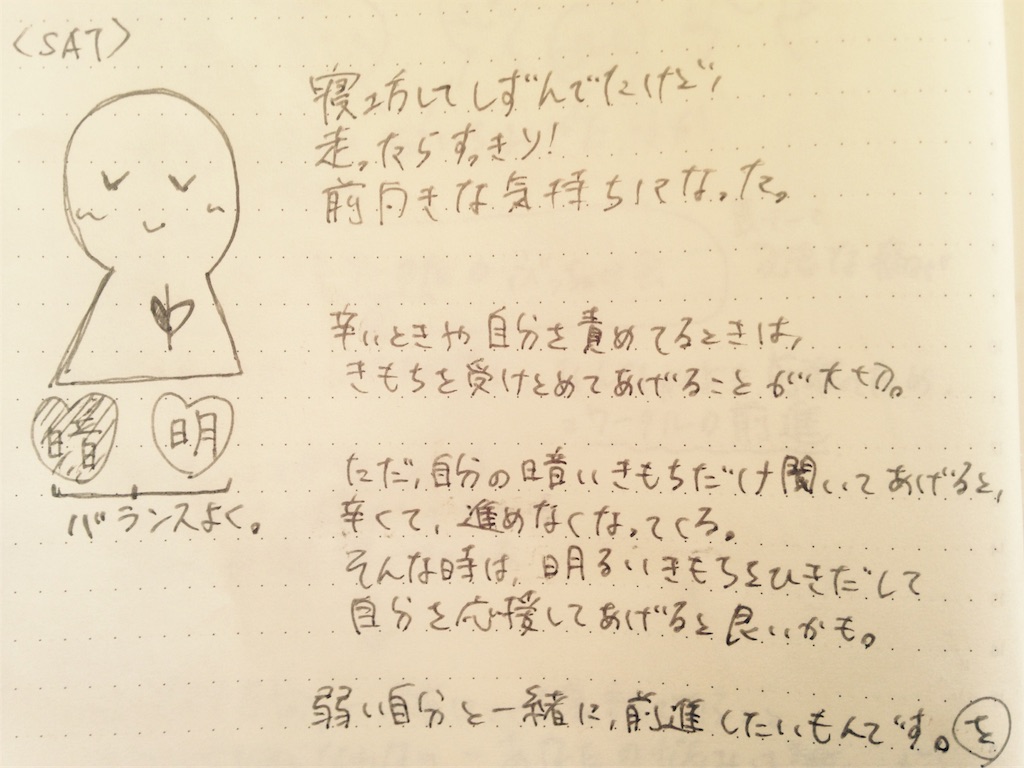 〈SAT〉
寝坊してしずんでたけど、
走ったらすっきり!
前向きな気持ちになった。
辛いときや自分を責めてるときは、
きもちを受けとめてあげることが大切。
暗 明
バランスよく。
ただ、自分の暗いきもちだけ聞いてあげると、
辛くて、進めなくなってくる。
そんな時は、明るいきもちをひきだして
自分を応援してあげると良いかも。
弱い自分と一緒に、前進したいもんです。を